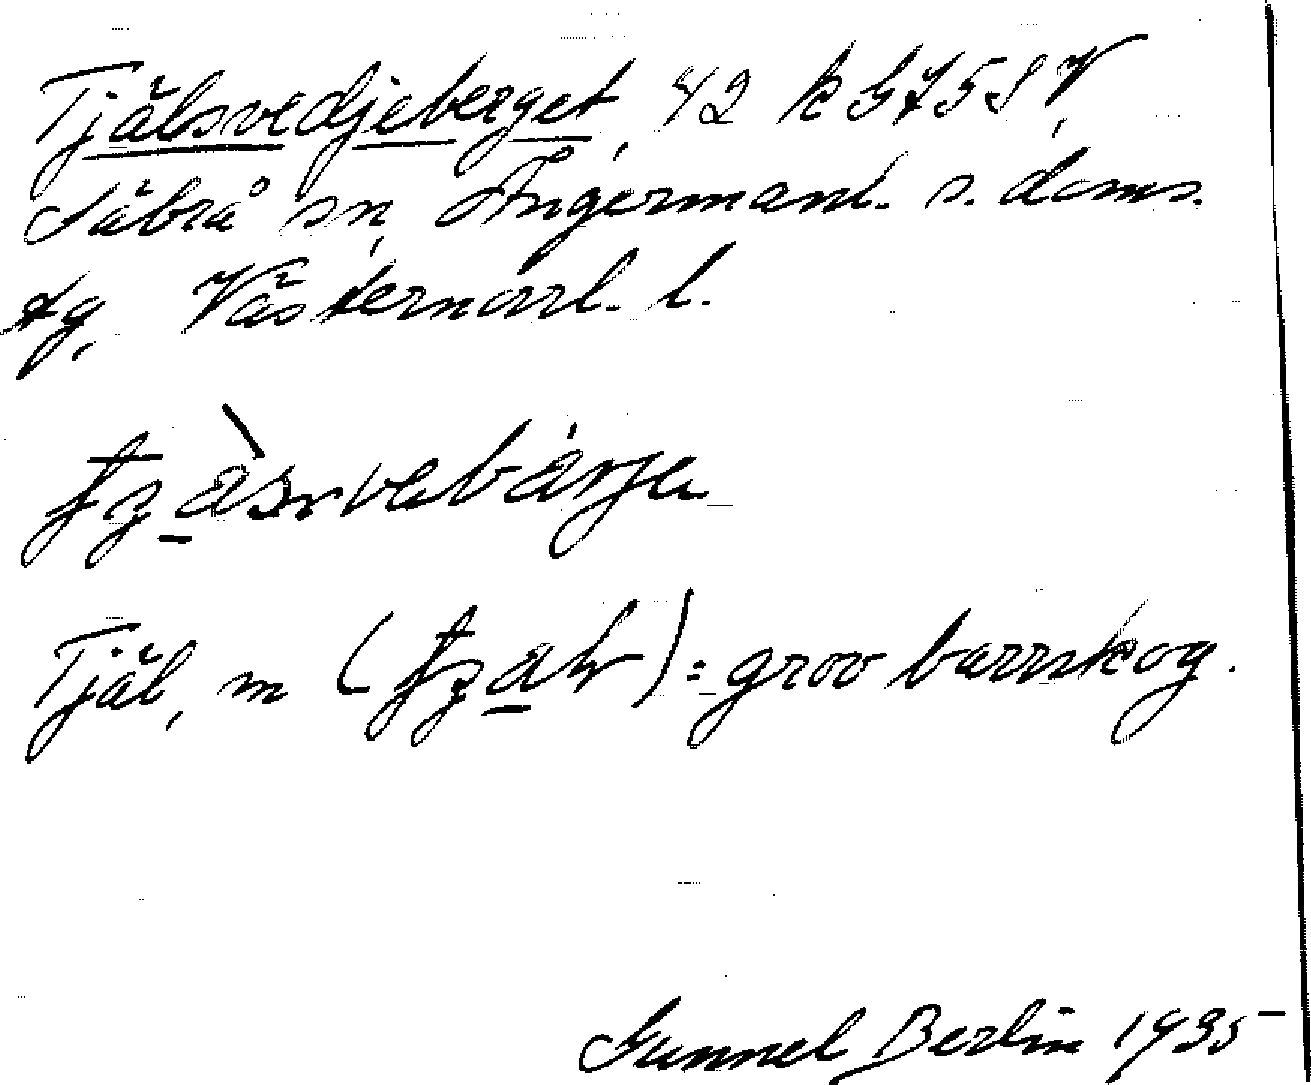 Tjälsvedjeberget, 42 k G475SV,
Säbrå sn, Ångermanl. s. doms.
tg, Västernorrl. l.
Tjäl, m = grov barrskog.
Gunnel Berlin 1935